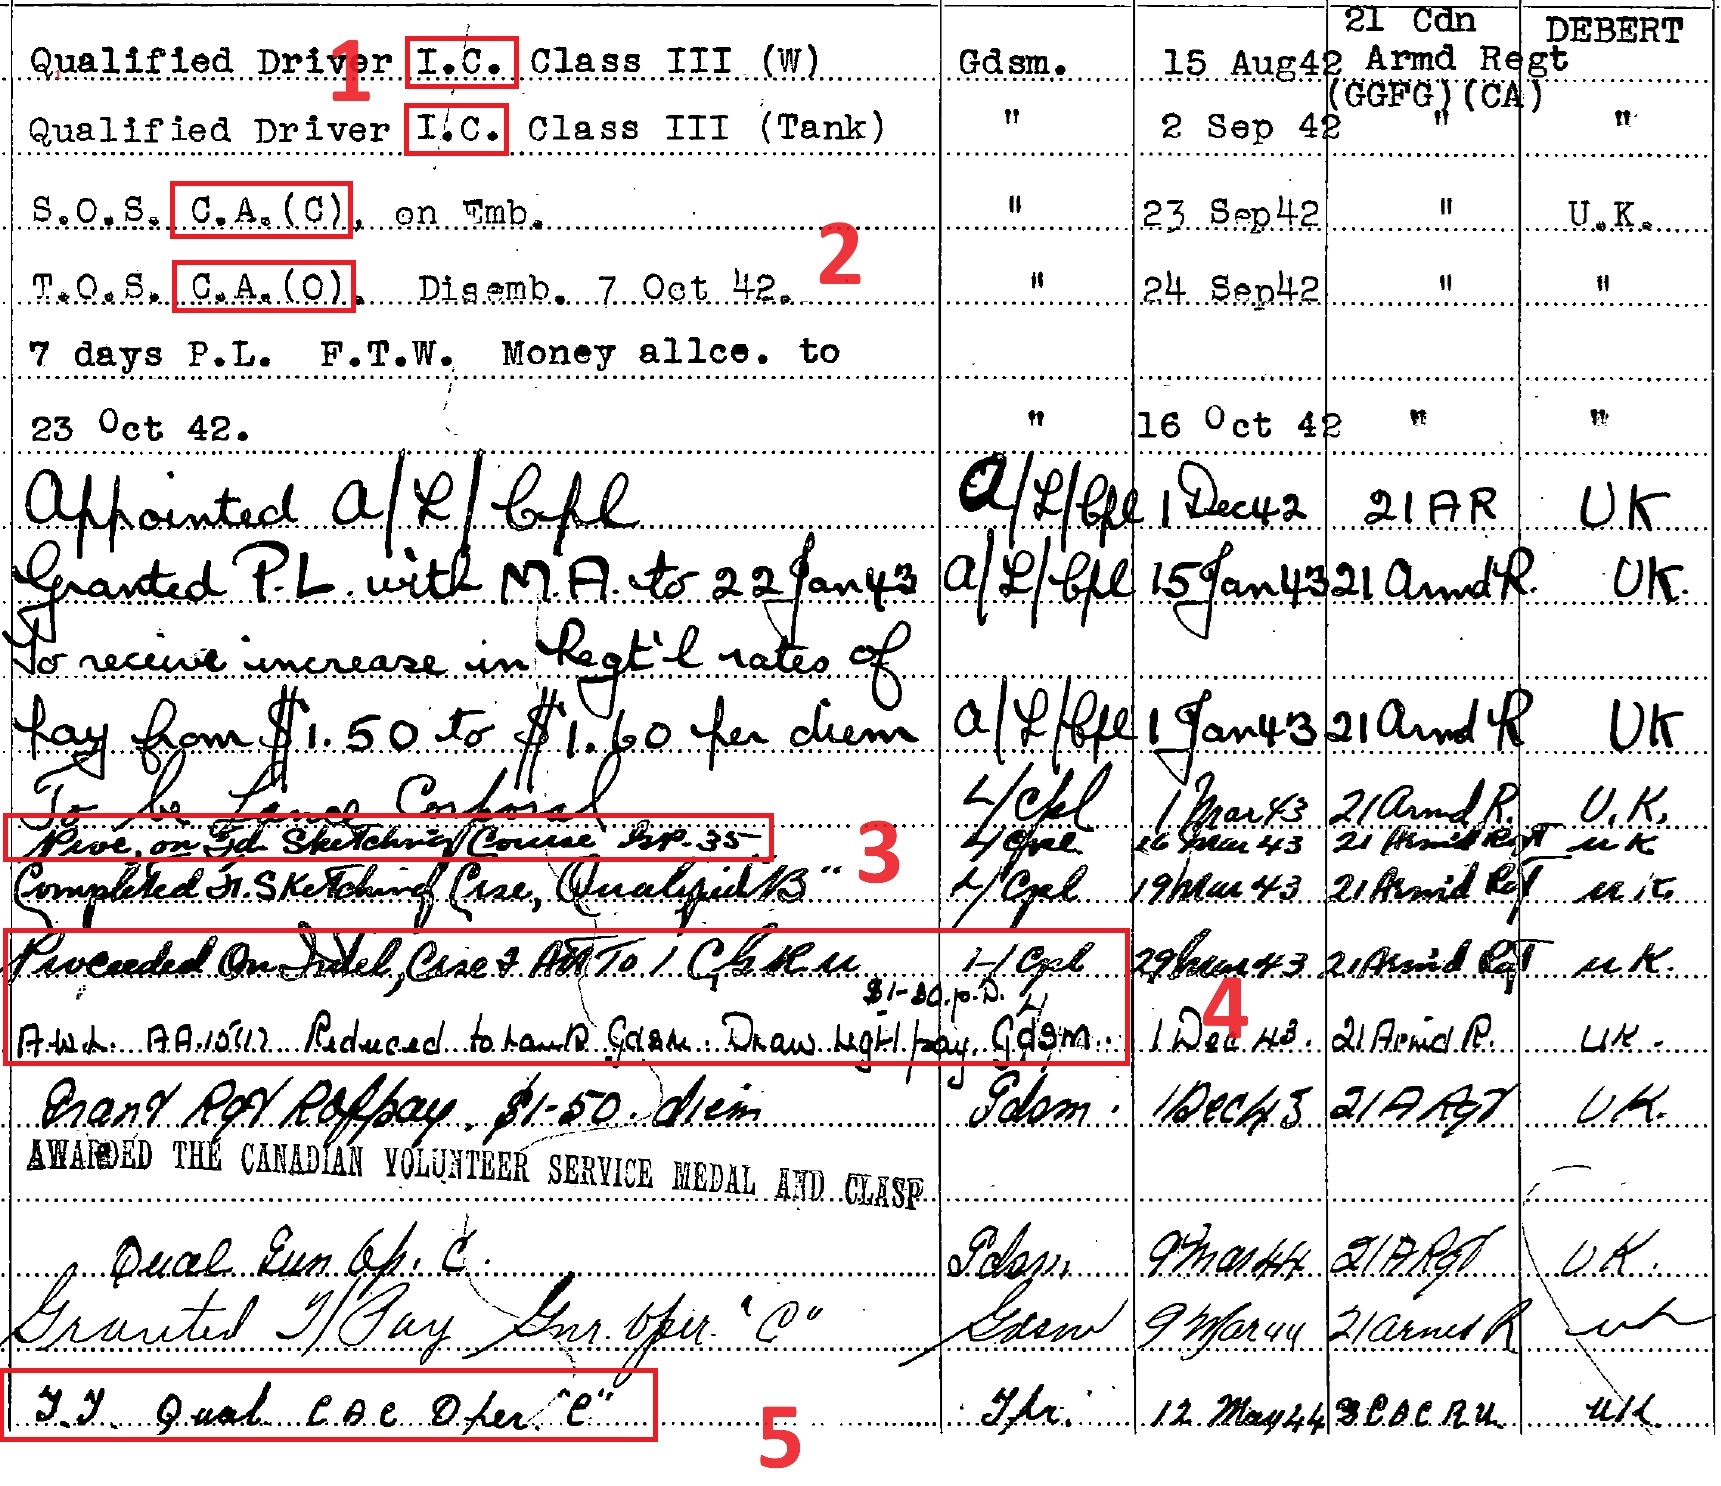 21 Cdn DEBERT
Qualified Driver I.C. Class III (W) Gdsm. 15 Aug42 Armd Regt
(GGFG)(CA)
Qualified Driver I.C. Class III (Tank) " 2 Sep 42 " "
S.O.S. C.A.(C), on Emb. " 23 Sep42 " U.K.
T.O.S. C.A.(O). Disemb. 7 Oct 42. " 24 Sep42 " "
7 days P.L. F.T.W. Money allce. to
23 Oct 42. " 16 Oct 42 " "
Appointed A/L/Cpl A/L/Cpl 1 Dec42 21 AR UK
Granted P.L. with M.A. to 22 Jan 43 A/L/Cpl 15 Jan 43 21 Armd R. UK.
To receive increase in Regt'l rates of
pay from $1.50 to $1.60 per diem A/L/Cpl 1 Jan 43 21 Armd R UK
To be Lance Corporal L/Cpl 1 Mar 43 21 Armd R. U.K.
Proc. on Fd. Sketching Course 35 L/Cpl 16 Mar 43 21 Armd Rgt UK
Completed Fd. Sketching Crse, Qualified "B" L/Cpl 19 Mar 43 21 Armd Rgt UK
Proceeded On Intel, Crse & Att To 1 C L/Cpl 29 Mar 43 21 Armd Rgt UK.
$1-50.p.D.
A.W.L. AA.15(1) Reduced to rank Gdsm. Draw regtl pay. Gdsm. 1 Dec 43. 21 Armd R. UK.
Grant Rgt R of pay. $1-50. diem Gdsm. 1 Dec 43 21 A Rgt UK.
AWARDED THE CANADIAN VOLUNTEER SERVICE MEDAL AND CLASP
Qual Gun Op. C. Gdsm. 9 Mar 44 21 A Rgt UK.
Granted T/Pay Gnr. Oper. "C" Gdsm 9 Mar 44 21 Armd R UK
T.T. Qual C A C Oper. "C" Tpr. 12 May 44 3 C A C R U. UK.
1
2
3
4
5